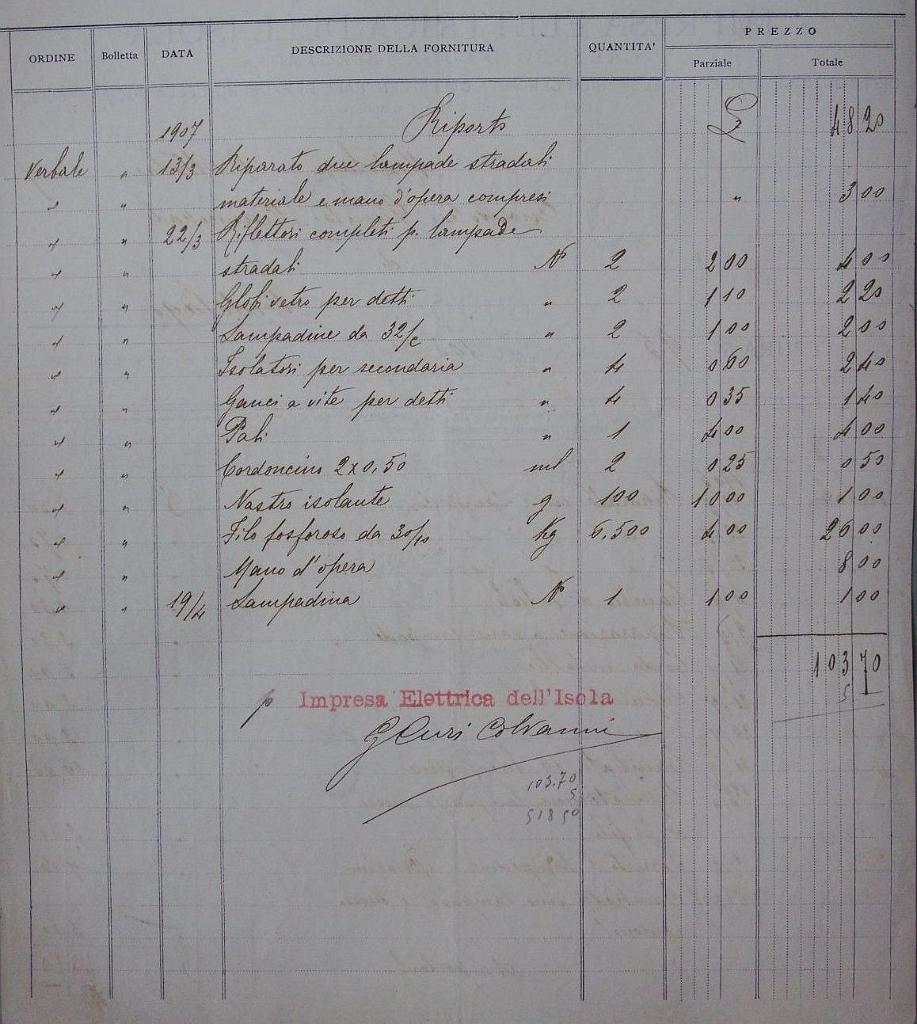 PREZZO
ORDINE Bolletta DATA DESCRIZIONE DELLA FORNITURA QUANTITA' Parziale Totale
1907 Riporto £ 48 20
Verbale " 13/3 Riparato due lampade stradali
" " materiale e mano d'opera compresi " 3 00
" " 22/3 Riflettori completi p. lampade
" " stradali N 2 2 00 4 00
" " Globi vetro per detti " 2 1 10 2 20
" " Lampadine da 32/c " 2 1 00 2 00
" " Isolatori per secondaria " 4 0 60 2 40
" " Ganci a vite per detti " 4 0 35 1 40
" " Pali " 1 4 00 4 00
" " Cordoncino 2x0,50 ml 2 0 25 0 50
" " Nastro isolante g 100 10 00 1 00
" " Filo fosforoso da 30/10 Kg 6,500 4 00 26 00
" " Mano d'opera 8 00
" " 19/4 Lampadina N 1 1 00 1 00
103 70
5
p Impresa Elettrica dell'Isola
103.70
5
518 50